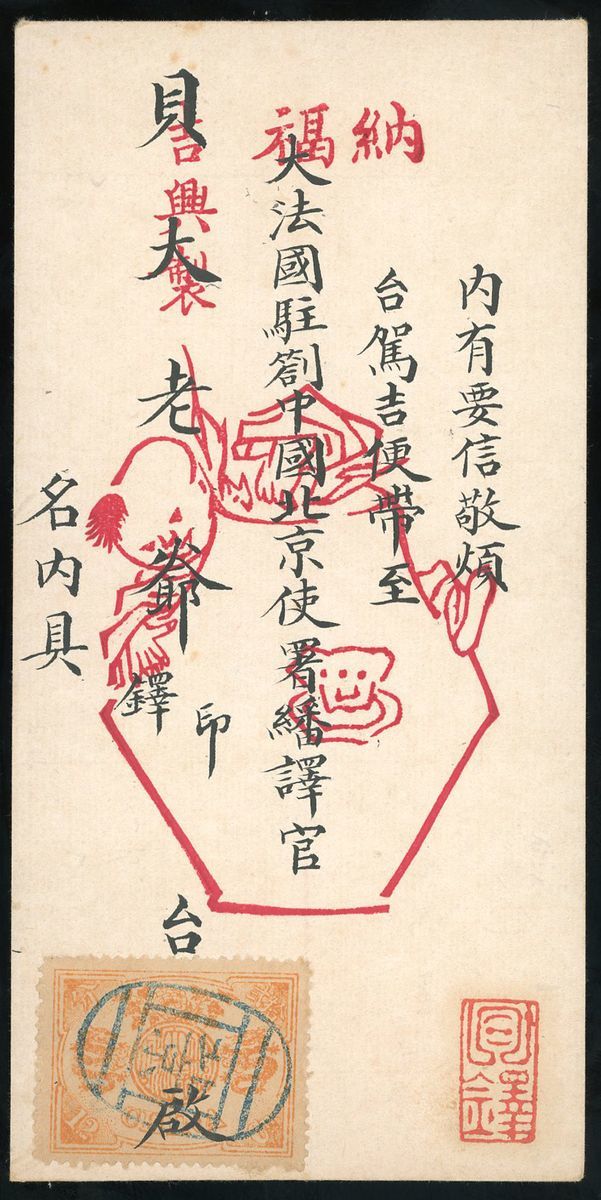 納福
内有要信敬煩
台駕吉便帶至
大法國駐劄中國北京使署繙譯官
貝大老爺印鐸台啟
吉興製
名内具
貝鐸